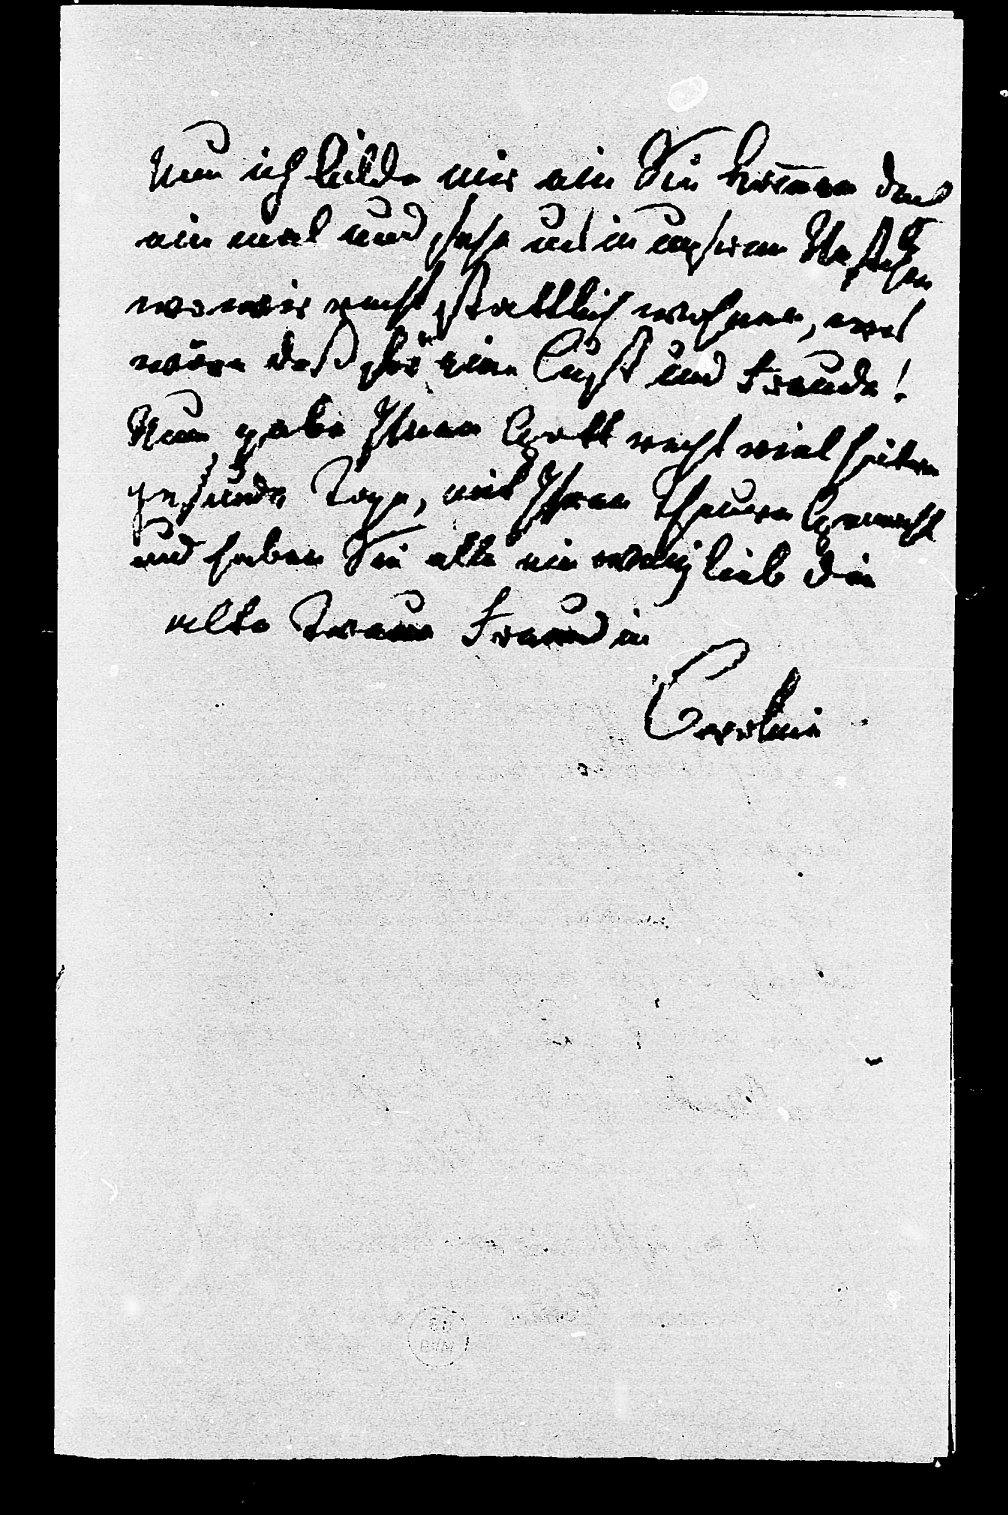 Nun ich bilde mir ein Sie kom̅en doch
ein mal und sehe uns in unserem Nestchen
wo wir recht stattlich wohnen, was
wäre daß für eine Lust und Freude!
Nun gebe Ihnen Gott recht viel heitre
gesunde Tage, mit Ihren Theuren Gemahl
und haben Sie alle ein wenig lieb die
alte Treue Freundin
Caroline